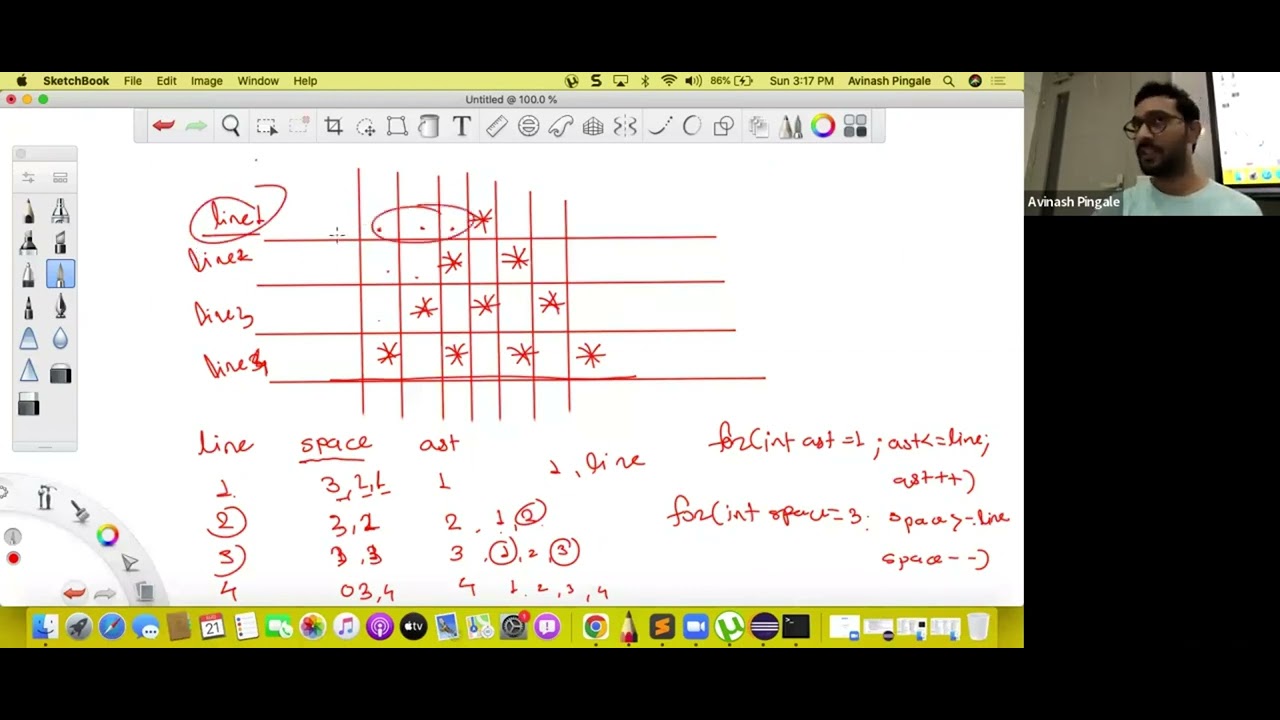 SketchBook File Edit Image Window Help 86% Sun 3:17 PM Avinash Pingale
Untitled @ 100.0 %
T
Avinash Pingale
line1
line2
line3
line
line space ast
1 3,2,1 1
1, line
2 3,2 2, 1, 2
3 3 3, 1, 2, 3
4 03,4 4 1, 2, 3, 4
for(int ast = 1 ; ast<=line;
ast++)
for(int space=3; space>=line
space--)
21
tv
1